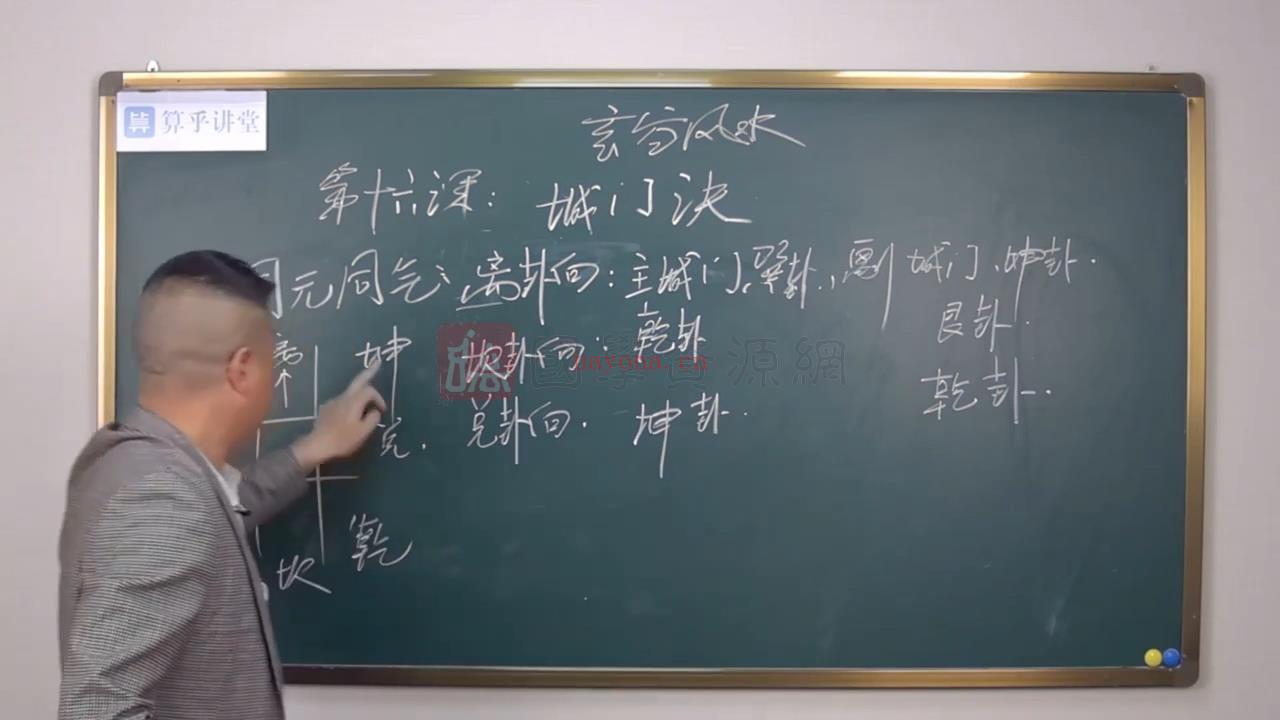 算乎讲堂
玄空风水
第十六课：城门决
同元同气：离卦向：主城门，巽卦，副城门、坤卦.
坎卦向：乾卦 艮卦.
兑卦向. 坤卦. 乾卦.
离 坤
兑.
坎 乾
nayona.cn
國學資源網